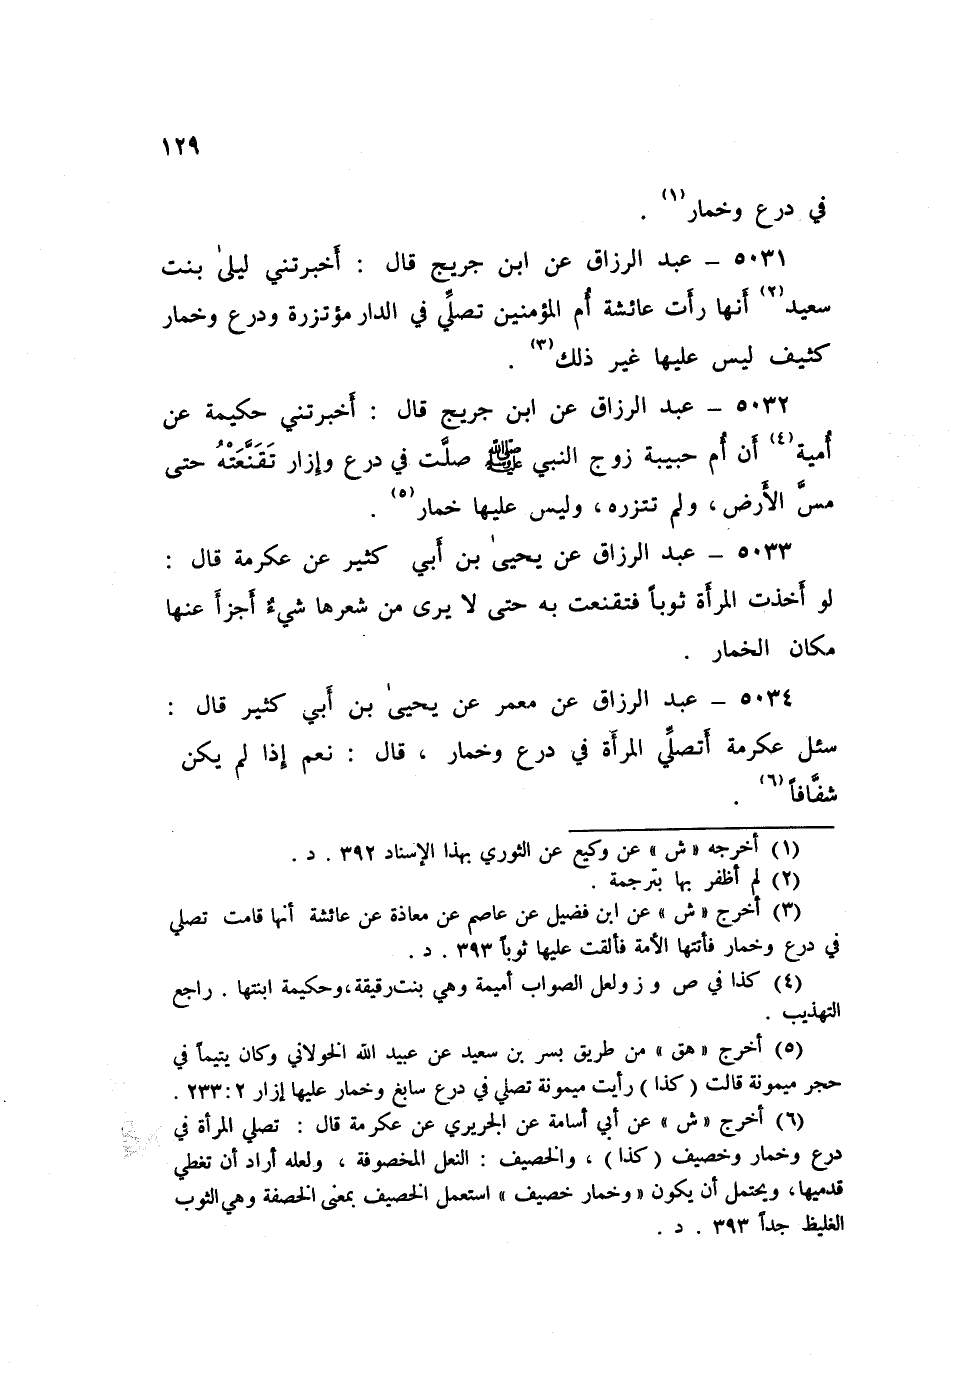 ١٢٩
في درع وخمار(١) .
٥٠٣١ – عبد الرزاق عن ابن جريج قال : أَخبرتني ليلىٰ بنت
سعيد(٢) أَنها رأَت عائشة أُم المؤمنين تصلِّي في الدار مؤتزرة ودرع وخمار
كثيف ليس عليها غير ذلك(٣) .
٥٠٣٢ – عبد الرزاق عن ابن جريج قال : أَخبرتني حكيمة عن
أُمية(٤) أَن أُم حبيبة زوج النبي ﷺ صلَّت في درع وإزار تَقَنَّعَتْهُ حتى
مسَّ الأَرض ، ولم تتزره ، وليس عليها خمار(٥) .
٥٠٣٣ – عبد الرزاق عن يحيىٰ بن أَبي كثير عن عكرمة قال :
لو أَخذت المرأَة ثوباً فتقنعت به حتى لا يرى من شعرها شيءٌ أَجزأَ عنها
مكان الخمار .
٥٠٣٤ – عبد الرزاق عن معمر عن يحيىٰ بن أَبي كثير قال :
سئل عكرمة أَتصلِّي المرأَة في درع وخمار ، قال : نعم إِذا لم يكن
شفَّافاً(٦) .
(١) أخرجه «ش» عن وكيع عن الثوري بهذا الإسناد ٣٩٢ . د .
(٢) لم أظفر بها بترجمة .
(٣) أخرج «ش» عن ابن فضيل عن عاصم عن معاذة عن عائشة أنها قامت تصلي
في درع وخمار فأتتها الأمة فألقت عليها ثوباً ٣٩٣ . د .
(٤) كذا في ص و ز ولعل الصواب أميمة وهي بنت رقيقة ، وحكيمة ابنتها . راجع
التهذيب .
(٥) أخرج «هق» من طريق بسر بن سعيد عن عبيد الله الخولاني وكان يتيماً في
حجر ميمونة قالت (كذا) رأيت ميمونة تصلي في درع سابغ وخمار عليها إزار ٢ : ٢٣٣ .
(٦) أخرج «ش» عن أبي أسامة عن الجريري عن عكرمة قال : تصلي المرأة في
درع وخمار وخصيف (كذا) ، والخصيف : النعل المخصوفة ، ولعله أراد أن تغطي
قدميها ، ويحتمل أن يكون «وخمار خصيف» استعمل الخصيف بمعنى الخصفة وهي الثوب
الغليظ جداً ٣٩٣ . د .